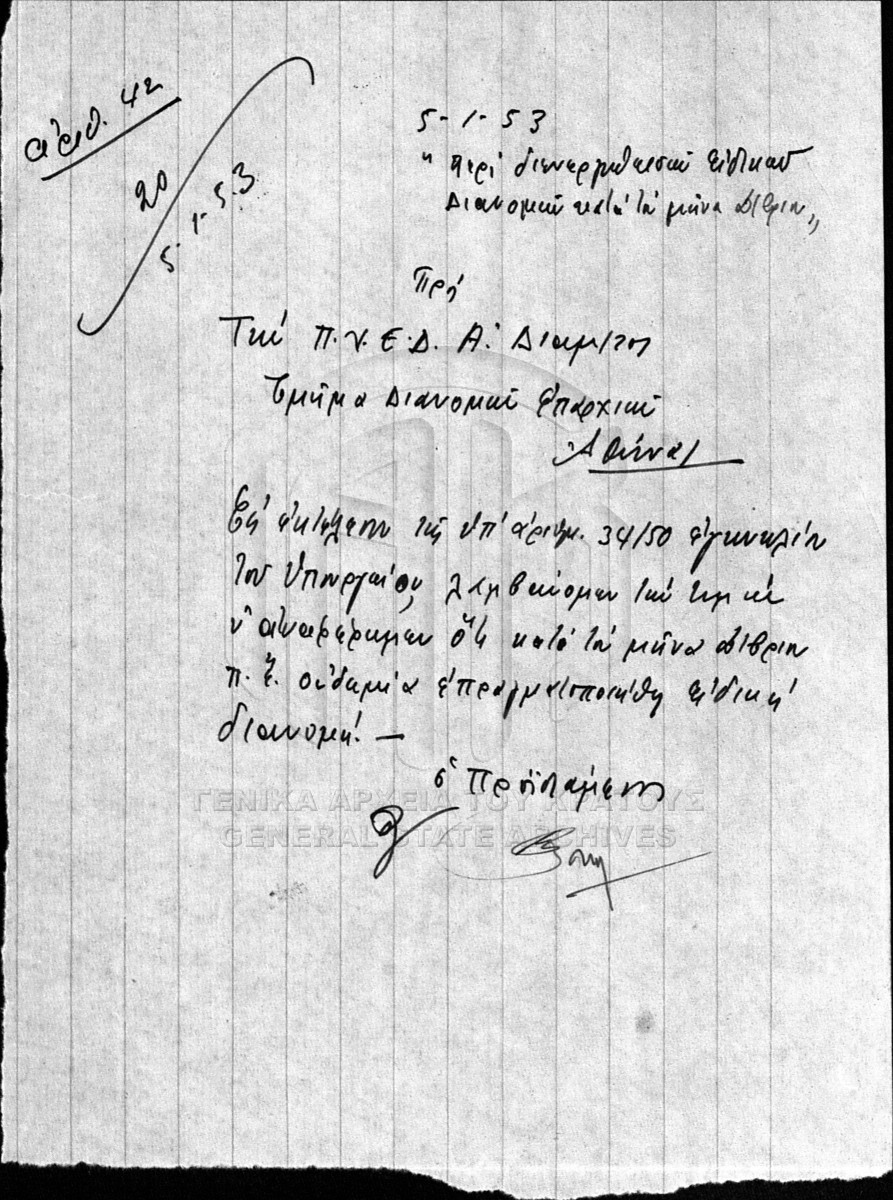 ἀριθ. 42
20
5-1-53
5-1-53
"Περί διενεργηθεισῶν εἰδικῶν
Διανομῶν κατά τόν μῆνα Δ/βριον„
Πρός
Τήν Π.Υ.Ε.Δ. Α.
Τμῆμα Διανομῶν Ἐπαρχιῶν
Ἀθήνας
Εἰς ἐκτέλεσιν τῆς ὑπ' ἀριθμ. 34/50 ἐγκυκλίου
τοῦ Ὑπουργείου, λαμβάνομεν τήν τιμήν
ν' ἀναφέρωμεν ὅτι κατά τόν μῆνα Δ/βριον
π. ἔ. οὐδεμία ἐπραγματοποιήθη εἰδική
διανομή. —
ὁ Προϊστάμενος
ΓΕΝΙΚΑ ΑΡΧΕΙΑ ΤΟΥ ΚΡΑΤΟΥΣ
GENERAL STATE ARCHIVES